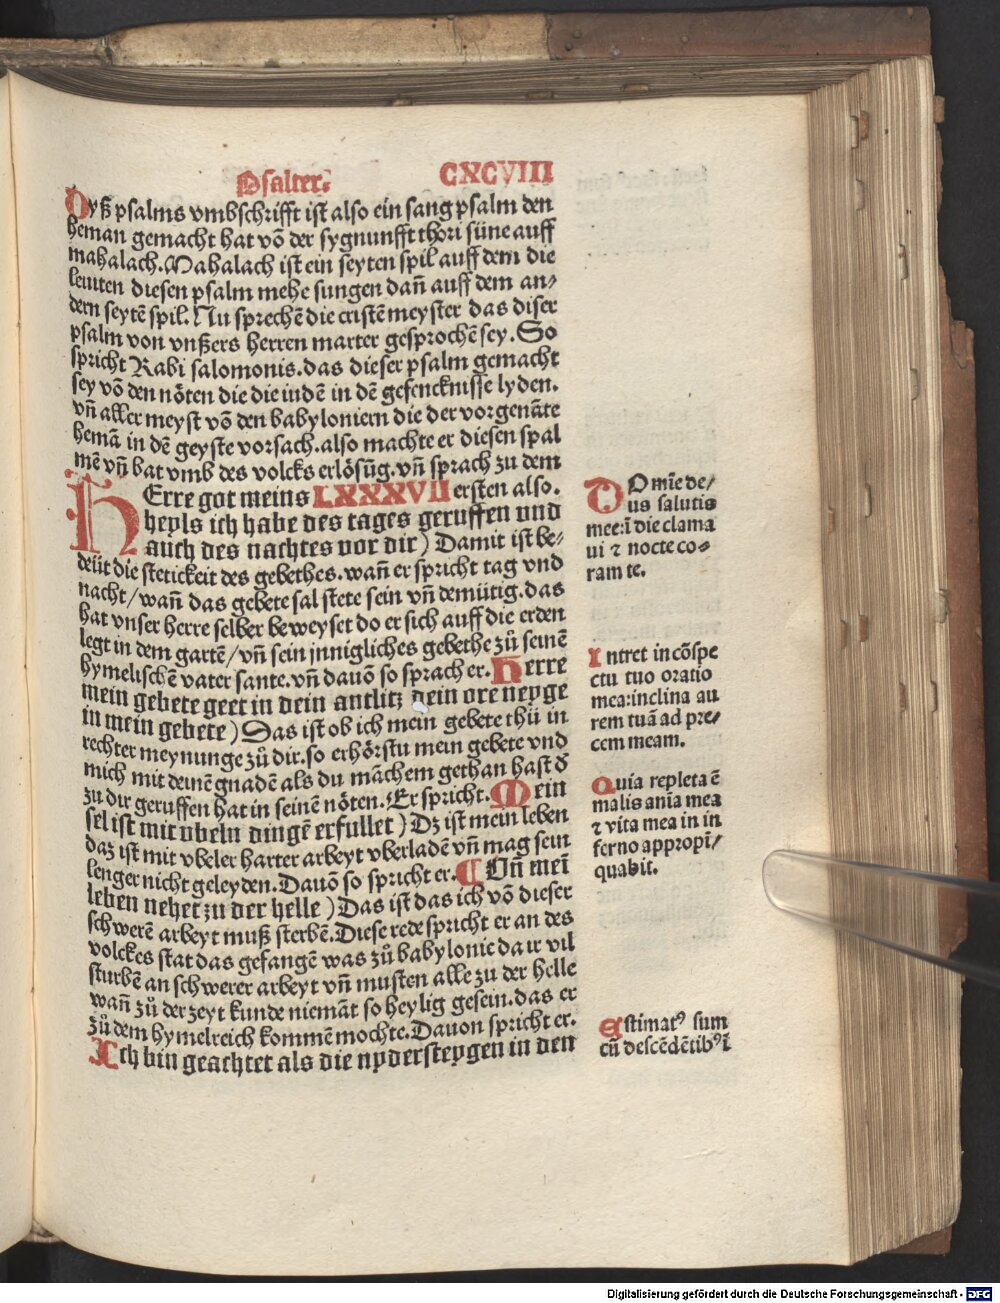 Psalter. CXCVIII
Dyß psalms vmbschrifft ist also ein sang psalm den
heman gemacht hat võ der sygnunfft thori süne auff
mahalach. Mahalach ist ein seyten spil auff dem die
leuiten diesen psalm mehe sungen dañ auff dem an⸗
dern seytẽ spil. Nu sprechẽ die cristẽ meyster das diser
psalm von vnßers herren marter gesprochẽ sey. So
spricht Rabi salomonis. das dieser psalm gemacht
sey võ den nöten die die iudẽ in dẽ gefencknisse lyden.
vñ aller meyst võ den babyloniern die der vorgenãte
hemã in dẽ geyste vorsach. also machte er diesen spal
mẽ vñ bat vmb des volcks erlösũg. vñ sprach zu dem
HErre got meins LXXXVII ersten also.
heyls ich habe des tages geruffen vnd
auch des nachtes vor dir) Damit ist be⸗
deüt die stetickeit des gebethes. wañ er spricht tag vnd
nacht/ wañ das gebete sal stete sein vñ demütig. das
hat vnser herre selber beweyset do er sich auff die erden
legt in dem gartẽ/ vñ sein jnnigliches gebethe zů seinẽ
hymelischẽ vater sante. vñ dauõ so sprach er. Herre
mein gebete geet in dein antlitz dein ore neyge
in mein gebete) Das ist ob ich mein gebete thü in
rechter meynunge zů dir. so erhörstu mein gebete vnd
mich mit deinẽ gnadẽ als du mãchem gethan hast d̃
zu dir geruffen hat in seinẽ nöten. Er spricht. Mein
sel ist mit vbeln dingẽ erfullet) Dz ist mein leben
daz ist mit vbeler harter arbeyt vberladẽ vñ mag sein
lenger nicht geleyden. Dauõ so spricht er. ¶ Vñ meĩ
leben nehet zu der helle) Das ist das ich võ dieser
schwerẽ arbeyt muß sterbẽ. Diese rede spricht er an des
volckes stat das gefangẽ was zů babylonie da ir vil
sturbẽ an schwerer arbeyt vñ musten alle zu der helle
wañ zů der zeyt kunde niemãt so heylig gesein. das er
zů dem hymelreich kommẽ mochte. Dauon spricht er.
Ich bin geachtet als die nydersteygen in den
DOmĩe de/
us salutis
mee: ĩ die clama
ui ⁊ nocte co⸗
ram te.
Intret in cõspe
ctu tuo oratio
mea: inclina au
rem tuã ad pre/
cem meam.
Quia repleta ẽ
malis aniã mea
⁊ vita mea in in
ferno appropĩ/
quabit.
Estimatꝰ sum
cũ descẽdẽtibꝰ ĩ
Digitalisierung gefördert durch die Deutsche Forschungsgemeinschaft - DFG